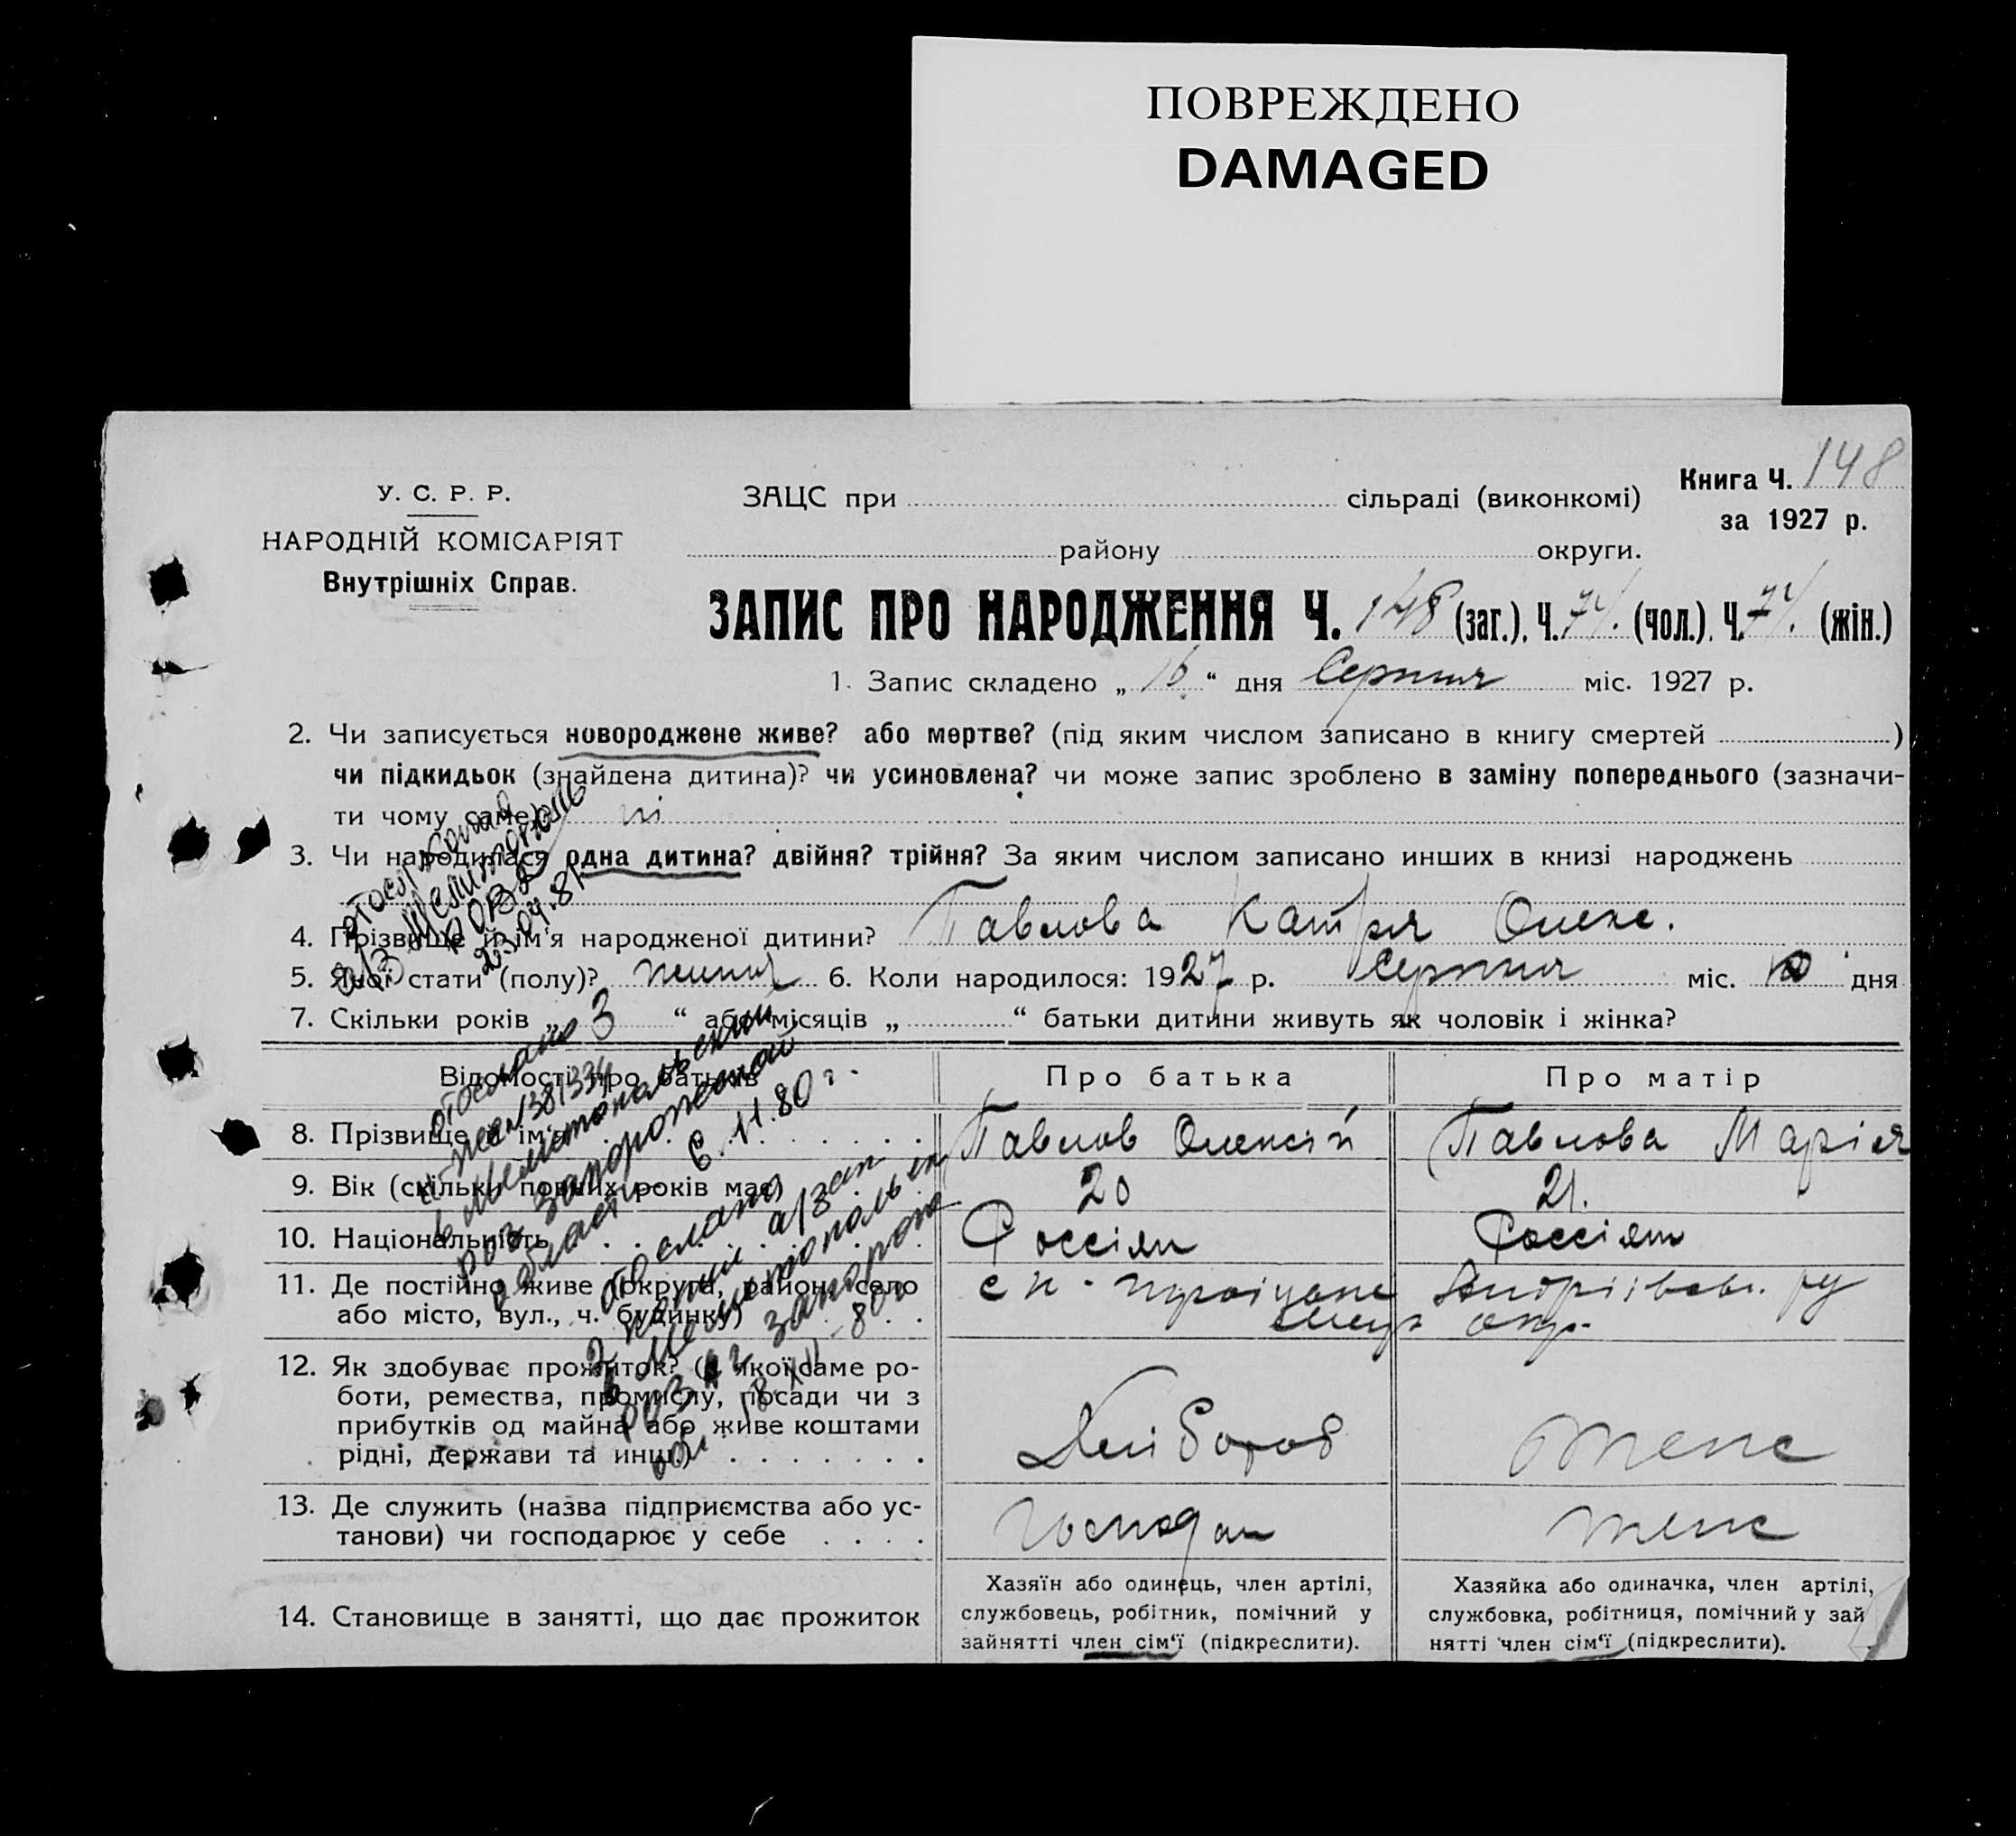 ПОВРЕЖДЕНО
DAMAGED
Книга Ч. 148
за 1927 р.
У. С. Р. Р.
НАРОДНІЙ КОМІСАРІЯТ
Внутрішніх Справ.
ЗАЦС при сільраді (виконкомі)
району округи.
ЗАПИС ПРО НАРОДЖЕННЯ Ч. 148 (заг.). Ч. 74. (чол.). Ч. 74. (жін.)
1. Запис складено „16“ дня Серпня міс. 1927 р.
2. Чи записується новороджене живе? або мертве? (під яким числом записано в книгу смертей )
чи підкидьок (знайдена дитина)? чи усиновлена? чи може запис зроблено в заміну попереднього (зазначи-
ти чому саме) ні
3. Чи народилася одна дитина? двійня? трійня? За яким числом записано инших в книзі народжень
4. Прізвище й ім'я народженої дитини? Павлова Катря Олекс.
5. Якої стати (полу)? жиноч 6. Коли народилося: 1927 р. Серпня міс. дня
7. Скільки років „ 3 “ або місяців „ “ батьки дитини живуть як чоловік і жінка?
отослано
в Мелитополь
23.04.81
отослано
№ 381334
в Мелитопольский
роз запорожской
области 6.11.80 г.
отослано
2 а/зап
в Мелитопольск
роз запорож
обл 80г
Відомості про батьків
Про батька
Про матір
8. Прізвище й ім'я . . . Павлов Олексій Павлова Марія
9. Вік (скільки повних років має) 20 21.
10. Національність . . . Россіян Россіян
11. Де постійно живе (округа, район, село
або місто, вул., ч. будинку) . . .
с н. Троіцьке Андріівськ. ру
Мел окр.
12. Як здобуває прожиток? (з якої саме ро-
боти, ремества, промислу, посади чи з
прибутків од майна або живе коштами
рідні, держави та инш.) . . . . . . .
Хлібороб
жене
13. Де служить (назва підприємства або ус-
танови) чи господарює у себе . . . .
Господар
жене
14. Становище в занятті, що дає прожиток
Хазяїн або одинець, член артілі,
службовець, робітник, помічний у
зайнятті член сім'ї (підкреслити).
Хазяйка або одиначка, член артілі,
службовка, робітниця, помічний у зай
нятті член сім'ї (підкреслити).